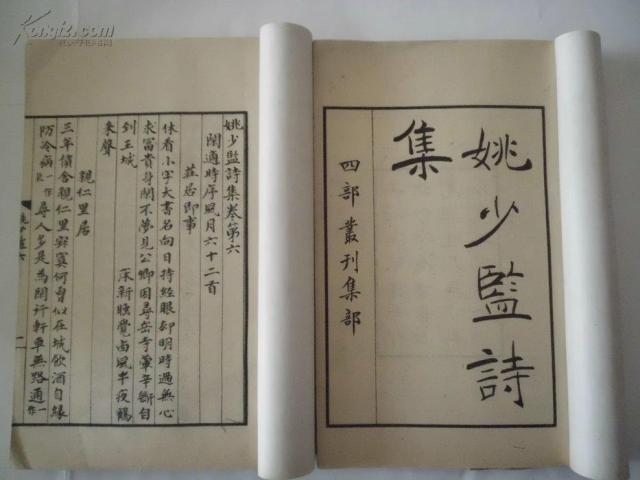 姚少監詩
集
四部叢刊集部
姚少監詩集卷第六
閑適時序風月六十二首
莊居即事
休看小字大書名向日持經眼却明時過無心
求富貴身閑不夢見公卿因尋岳寺葷辛斷自
到王城 床新睡覺西風半夜鶴
來聲
親仁里居
三年賃舍親仁里寂寞何曾似在城飲酒自緣
防冷病一作 尋人多是為閑行軒車無路通一作